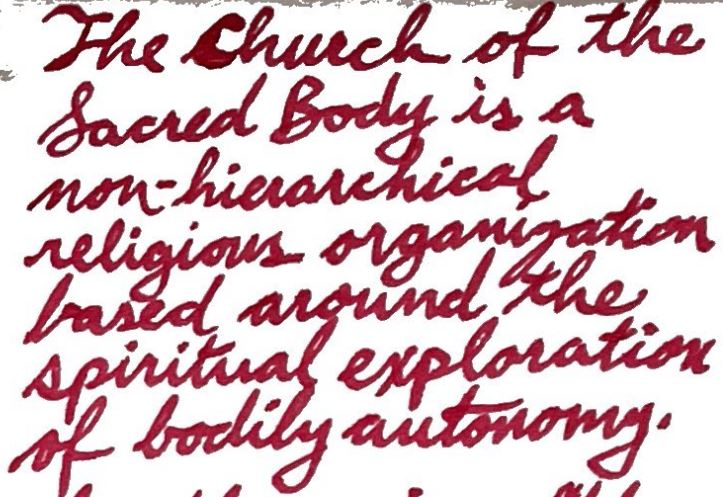 The Church of the
Sacred Body is a
non-hierarchical
religious organization
based around the
spiritual exploration
of bodily autonomy.